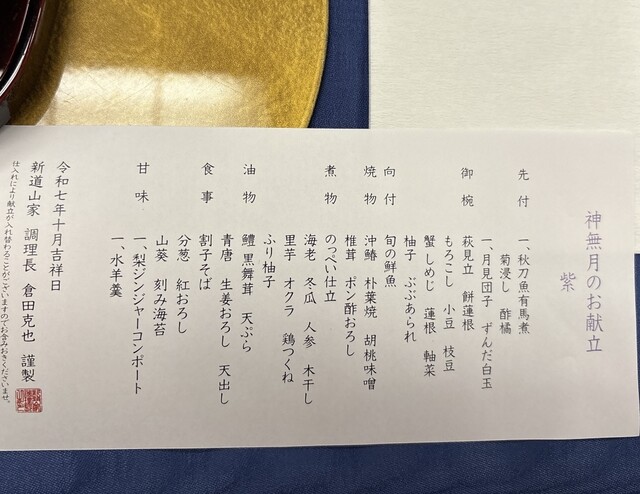 神無月のお献立
紫
先付 一、秋刀魚有馬煮
菊浸し 酢橘
一、月見団子 ずんだ白玉
御椀 萩見立 餅蓮根
もろこし 小豆 枝豆
蟹 しめじ 蓮根 軸菜
柚子 ぶぶあられ
向付 旬の鮮魚
焼物 沖鰆 朴葉焼 胡桃味噌
椎茸 ポン酢おろし
煮物 のっぺい仕立
海老 冬瓜 人参 木干し
里芋 オクラ 鶏つくね
ふり柚子
油物 鱧 黒舞茸 天ぷら
青唐 生姜おろし 天出し
食事 割子そば
分葱 紅おろし
山葵 刻み海苔
甘味 一、梨ジンジャーコンポート
一、水羊羹
令和七年十月吉祥日
新道山家 調理長 倉田克也 謹製
仕入れにより献立が入れ替わることがございますのでお含みおきくださいませ。